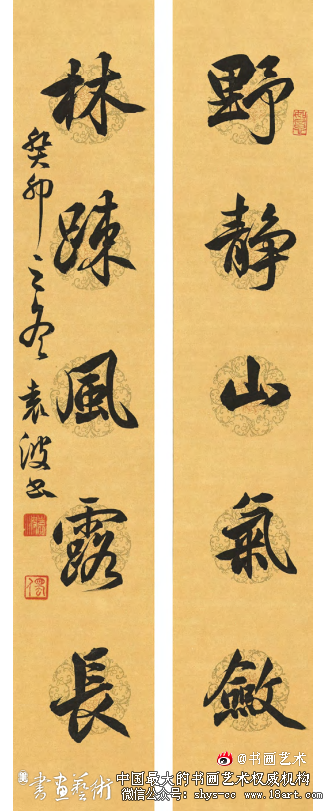 野静山氣斂
林疎風露長
癸卯之冬袁波书
@书画艺术
書畫藝術
中国最大的书画艺术权威机构
微信公众号：shys-cc www.18art.com